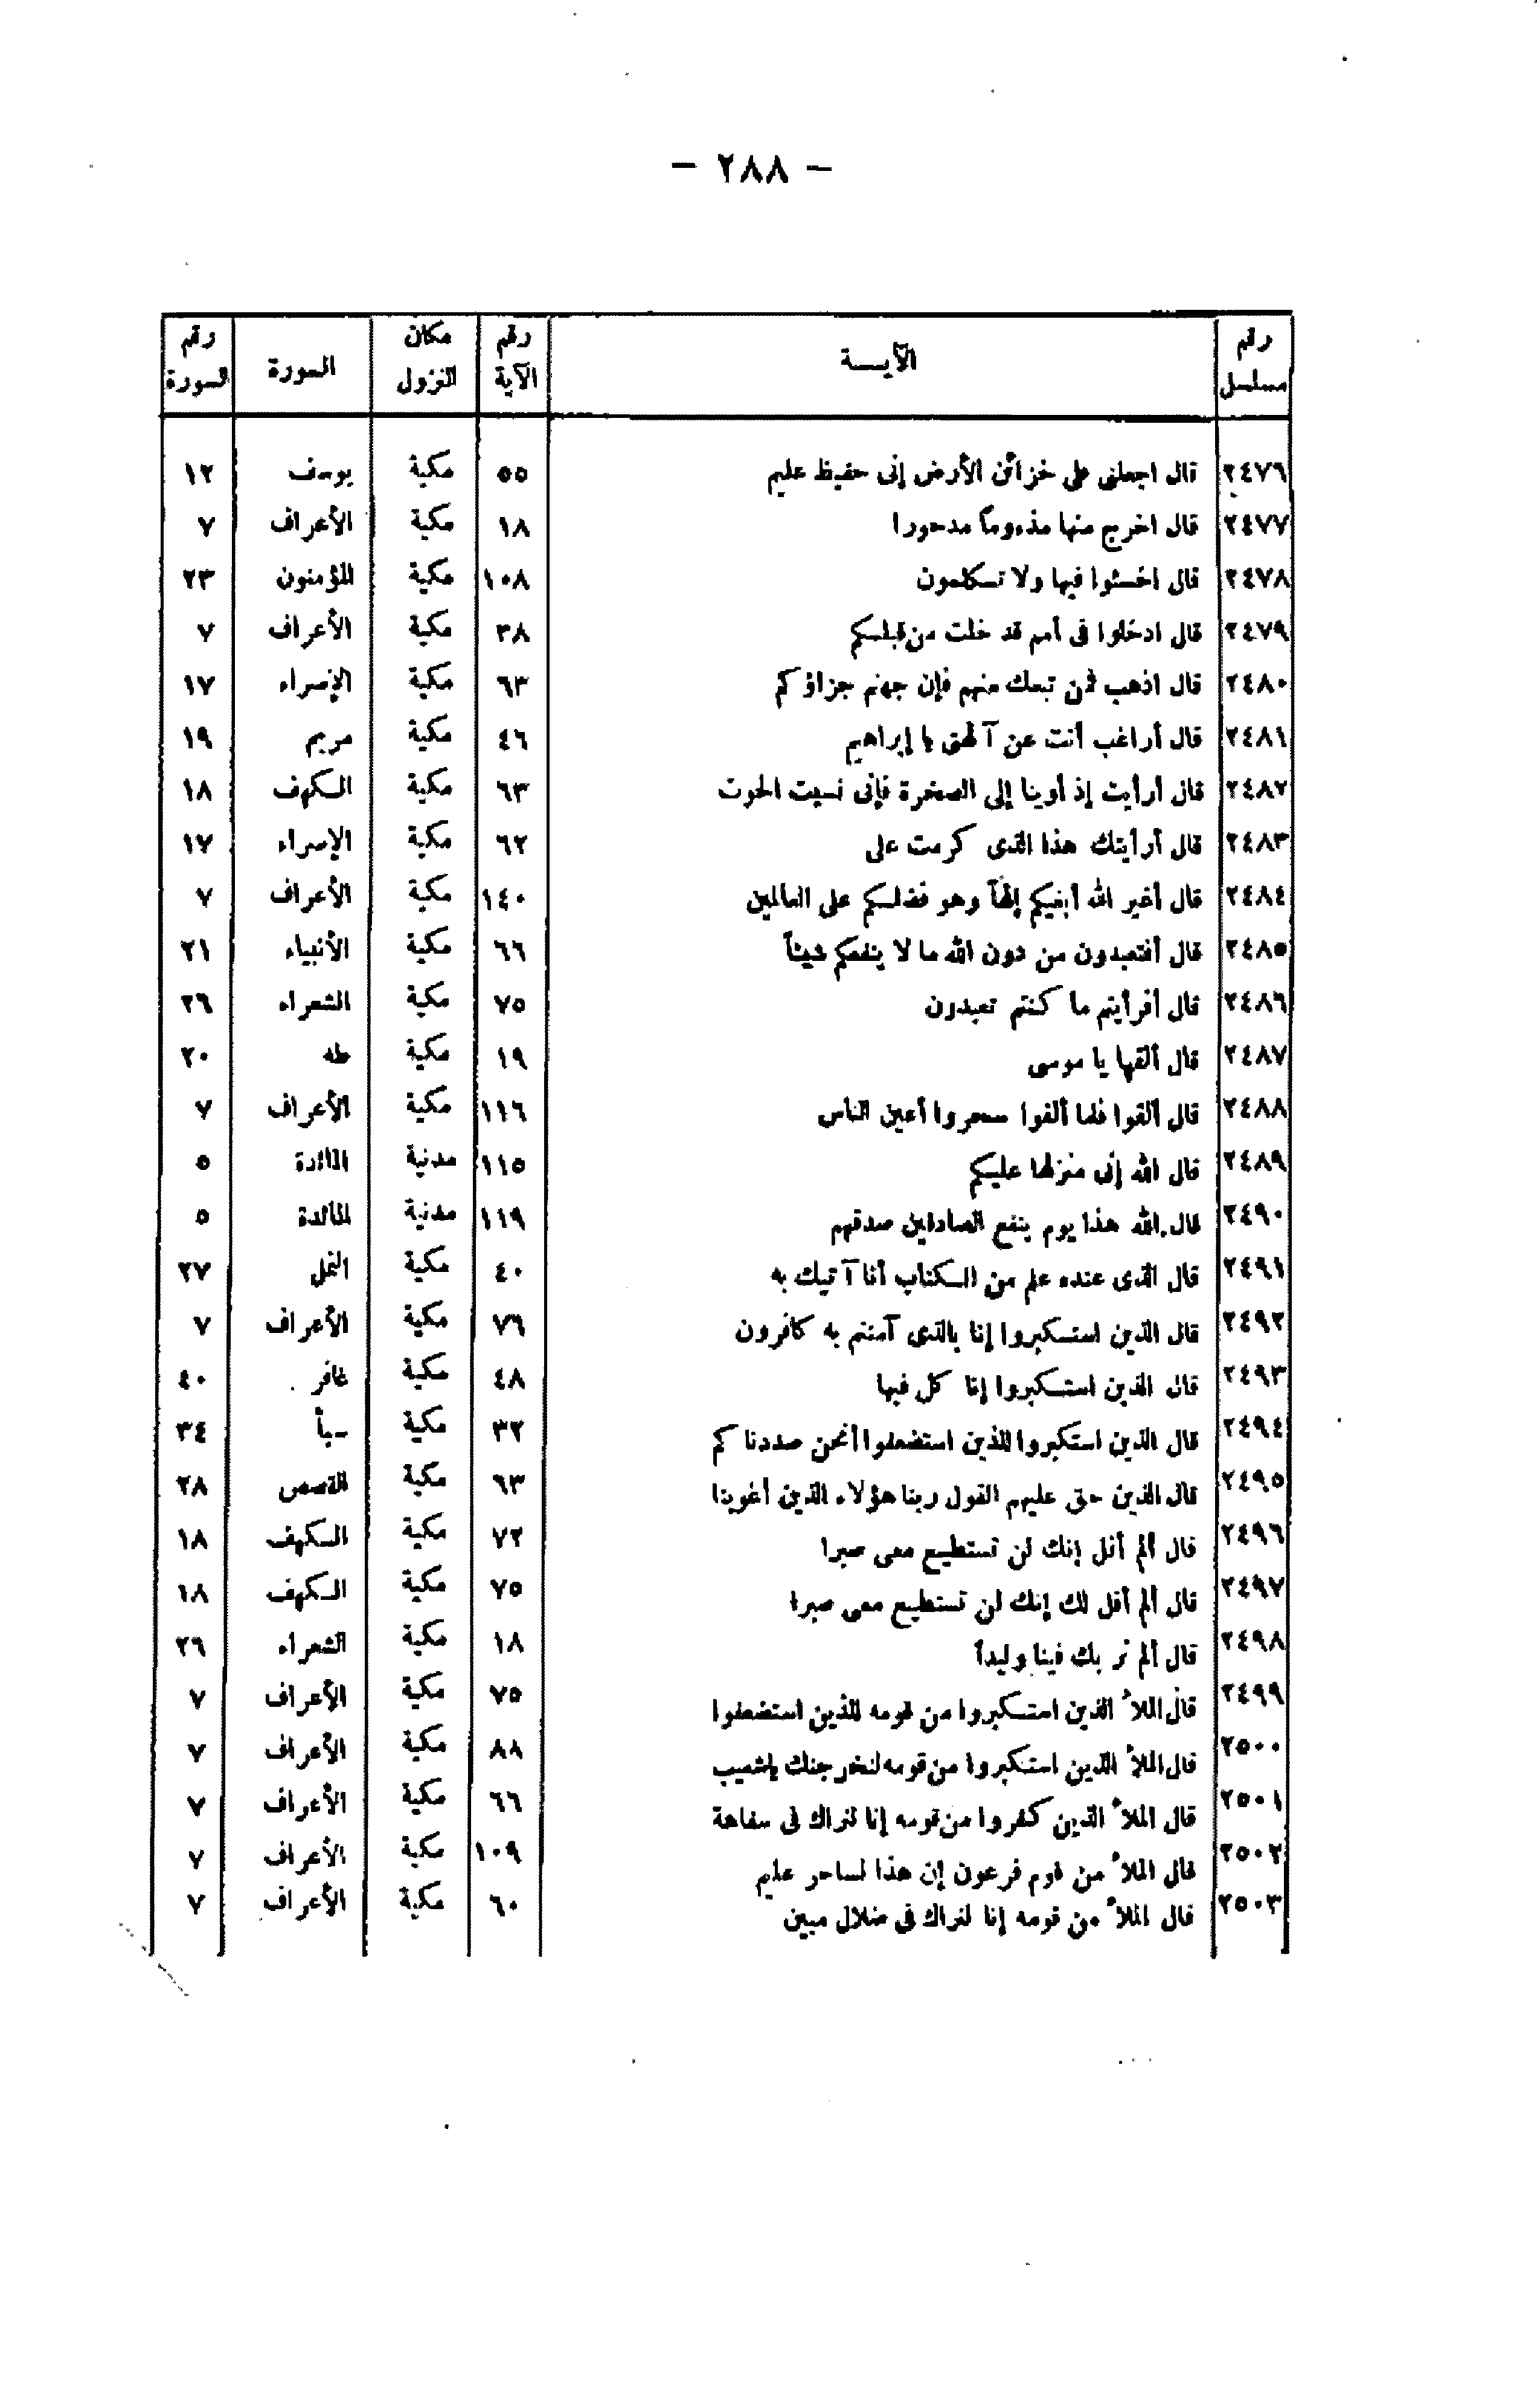 — ٢٨٨ —
رقم مسلسل | الآيـــة | رقم الآية | مكان النزول | السورة | رقم السورة
٢٤٧٦ قال اجعلنى على خزائن الأرض إنى حفيظ عليم ٥٥ مكية يوسف ١٢
٢٤٧٧ قال اخرج منها مذءوماً مدحورا ١٨ مكية الأعراف ٧
٢٤٧٨ قال اخسئوا فيها ولا تكلمون ١٠٨ مكية المؤمنون ٢٣
٢٤٧٩ قال ادخلوا فى أمم قد خلت من قبلكم ٣٨ مكية الأعراف ٧
٢٤٨٠ قال اذهب فمن تبعك منهم فإن جهنم جزاؤكم ٦٣ مكية الإسراء ١٧
٢٤٨١ قال أراغب أنت عن آلهتى يا إبراهيم ٤٦ مكية مريم ١٩
٢٤٨٢ قال أرأيت إذ أوينا إلى الصخرة فإنى نسيت الحوت ٦٣ مكية الكهف ١٨
٢٤٨٣ قال أرأيتك هذا الذى كرمت على ٦٢ مكية الإسراء ١٧
٢٤٨٤ قال أغير الله أبغيكم إلهاً وهو فضلكم على العالمين ١٤٠ مكية الأعراف ٧
٢٤٨٥ قال أفتعبدون من دون الله ما لا ينفعكم شيئاً ٦٦ مكية الأنبياء ٢١
٢٤٨٦ قال أفرأيتم ما كنتم تعبدون ٧٥ مكية الشعراء ٢٦
٢٤٨٧ قال ألقها يا موسى ١٩ مكية طه ٢٠
٢٤٨٨ قال ألقوا فلما ألقوا سحروا أعين الناس ١١٦ مكية الأعراف ٧
٢٤٨٩ قال الله إنى منزلها عليكم ١١٥ مدنية المائدة ٥
٢٤٩٠ قال الله هذا يوم ينفع الصادقين صدقهم ١١٩ مدنية المائدة ٥
٢٤٩١ قال الذى عنده علم من الكتاب أنا آتيك به ٤٠ مكية النمل ٢٧
٢٤٩٢ قال الذين استكبروا إنا بالذى آمنتم به كافرون ٧٦ مكية الأعراف ٧
٢٤٩٣ قال الذين استكبروا إنا كل فيها ٤٨ مكية غافر ٤٠
٢٤٩٤ قال الذين استكبروا للذين استضعفوا أنحن صددناكم ٣٢ مكية سبأ ٣٤
٢٤٩٥ قال الذين حق عليهم القول ربنا هؤلاء الذين أغوينا ٦٣ مكية القصص ٢٨
٢٤٩٦ قال ألم أقل إنك لن تستطيع معى صبرا ٧٢ مكية الكهف ١٨
٢٤٩٧ قال ألم أقل لك إنك لن تستطيع معى صبرا ٧٥ مكية الكهف ١٨
٢٤٩٨ قال ألم نربك فينا وليداً ١٨ مكية الشعراء ٢٦
٢٤٩٩ قال الملأ الذين استكبروا من قومه للذين استضعفوا ٧٥ مكية الأعراف ٧
٢٥٠٠ قال الملأ الذين استكبروا من قومه لنخرجنك ياشعيب ٨٨ مكية الأعراف ٧
٢٥٠١ قال الملأ الذين كفروا من قومه إنا لنراك فى سفاهة ٦٦ مكية الأعراف ٧
٢٥٠٢ قال الملأ من قوم فرعون إن هذا لساحر عليم ١٠٩ مكية الأعراف ٧
٢٥٠٣ قال الملأ من قومه إنا لنراك فى ضلال مبين ٦٠ مكية الأعراف ٧